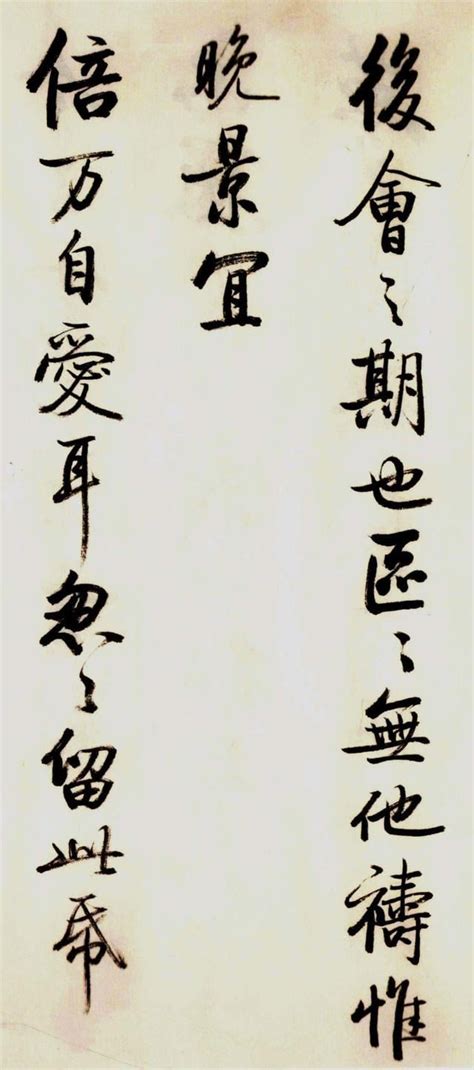 後會之期也區〻無他禱惟
晚景宜
倍万自愛耳怱〻留此帋